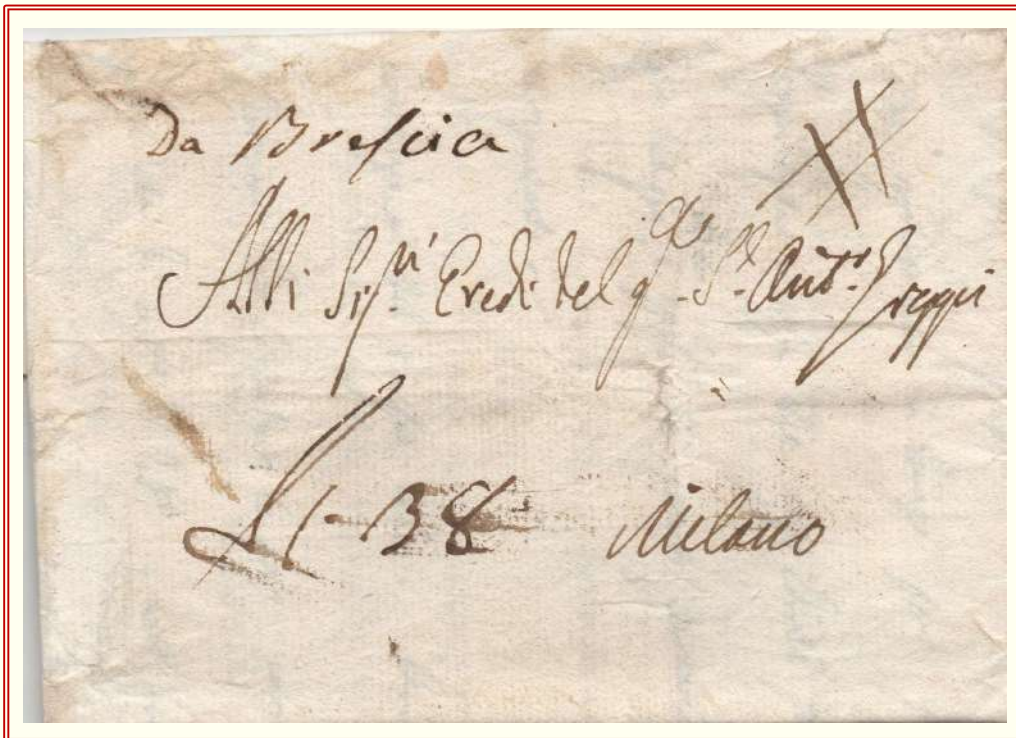 Da Brescia
XX
Alli Sig.ri Eredi del q. S.r Ant.o Greppi
38 Milano